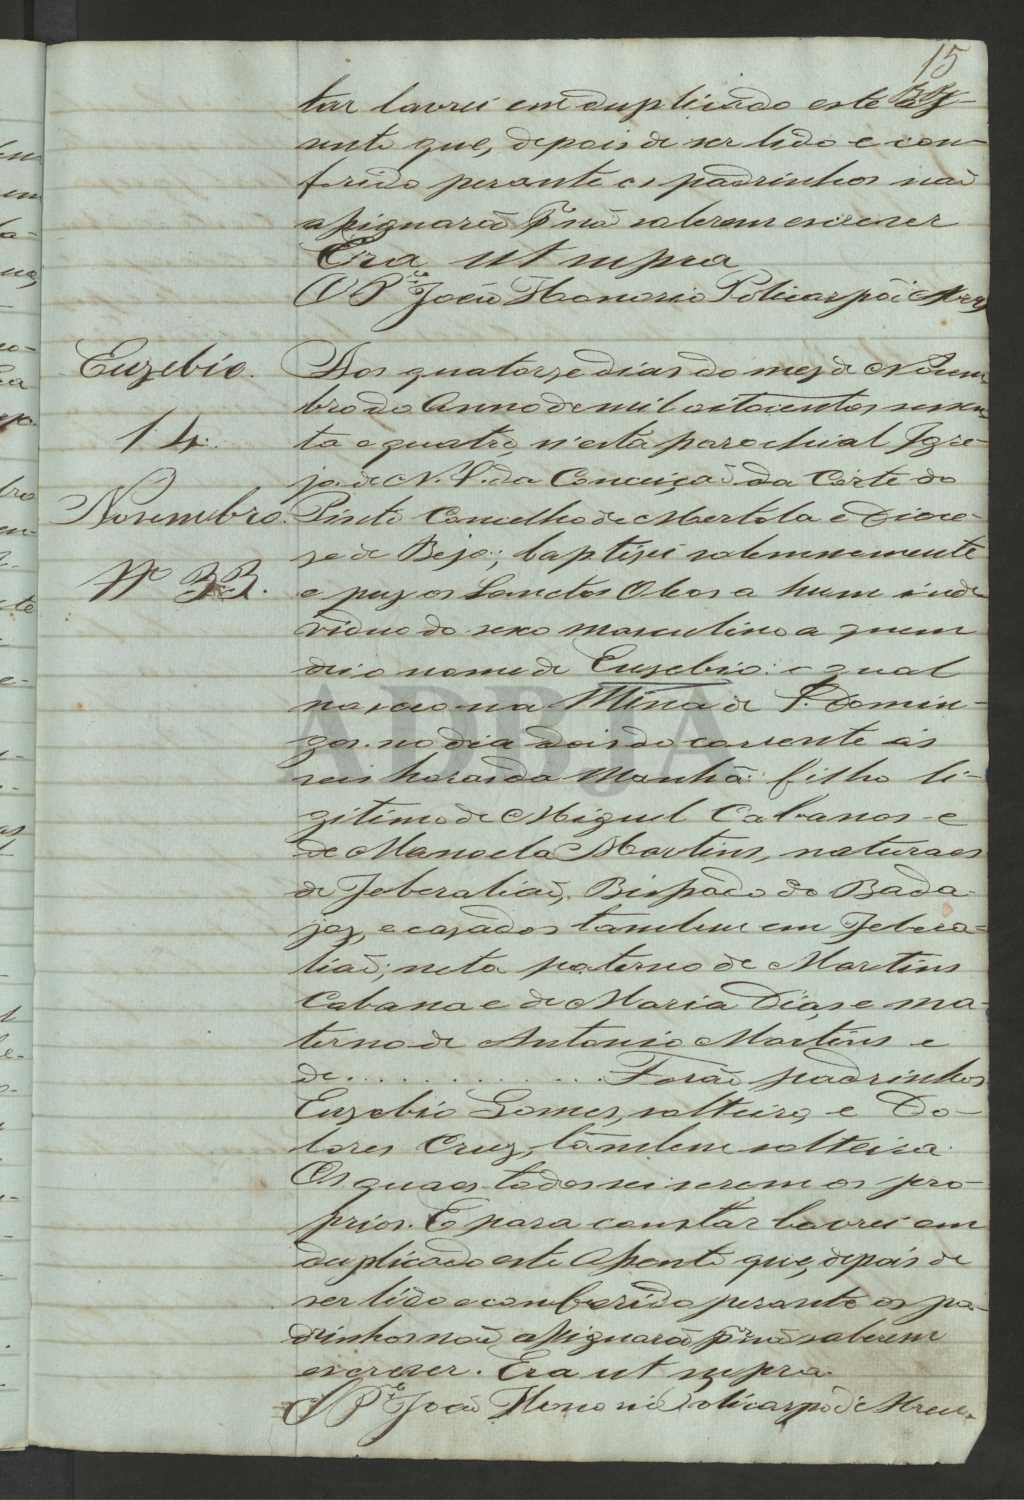 15
tar lavrei em duplicado este as-
sento que, depois de ser lido e con-
ferido perante os padrinhos não
assignarão por não saberem escrever
Era ut supra
O Pe. João Honorio Policarpo
Euzebio.
14.
Novembro.
Nº 33.
Aos quatorze dias do mez de Novem-
bro do Anno de mil oitocentos sessen-
ta e quatro, n'esta parochial Igre-
ja de N. S. da Conceição da Corte do
Pinto Concelho de Mertola e Dioce-
se de Beja; baptizei solemnemente
e puz os Sanctos Oleos a hum indi-
viduo do sexo masculino a quem
dei o nome de Euzebio: o qual
nasceo na Mina de S. Domin-
gos. no dia dois do corrente ás
seis horas da Manhã: filho li-
gitimo de Miguel Cabanos e
de Manoela Martins, naturaes
de Jeberalião, Bispado do Bada-
joz, e cazados tambem em Jebera-
lião; neto paterno de Martins
Cabana e de Maria Dias e ma-
terno de Antonio Martins e
de............. Forão padrinhos
Euzebio Gomes, solteiro, e Do-
lores Cruz, tambem solteira.
Os quaes todos sei serem os pro-
prios. E para constar lavrei em
duplicado este Assento que, depois de
ser lido e conferido perante os pa-
drinhos não assignarão por não saberem
escrever. Era ut supra.
O Pe. João Honorio Policarpo d'Abreu.
ADBJA